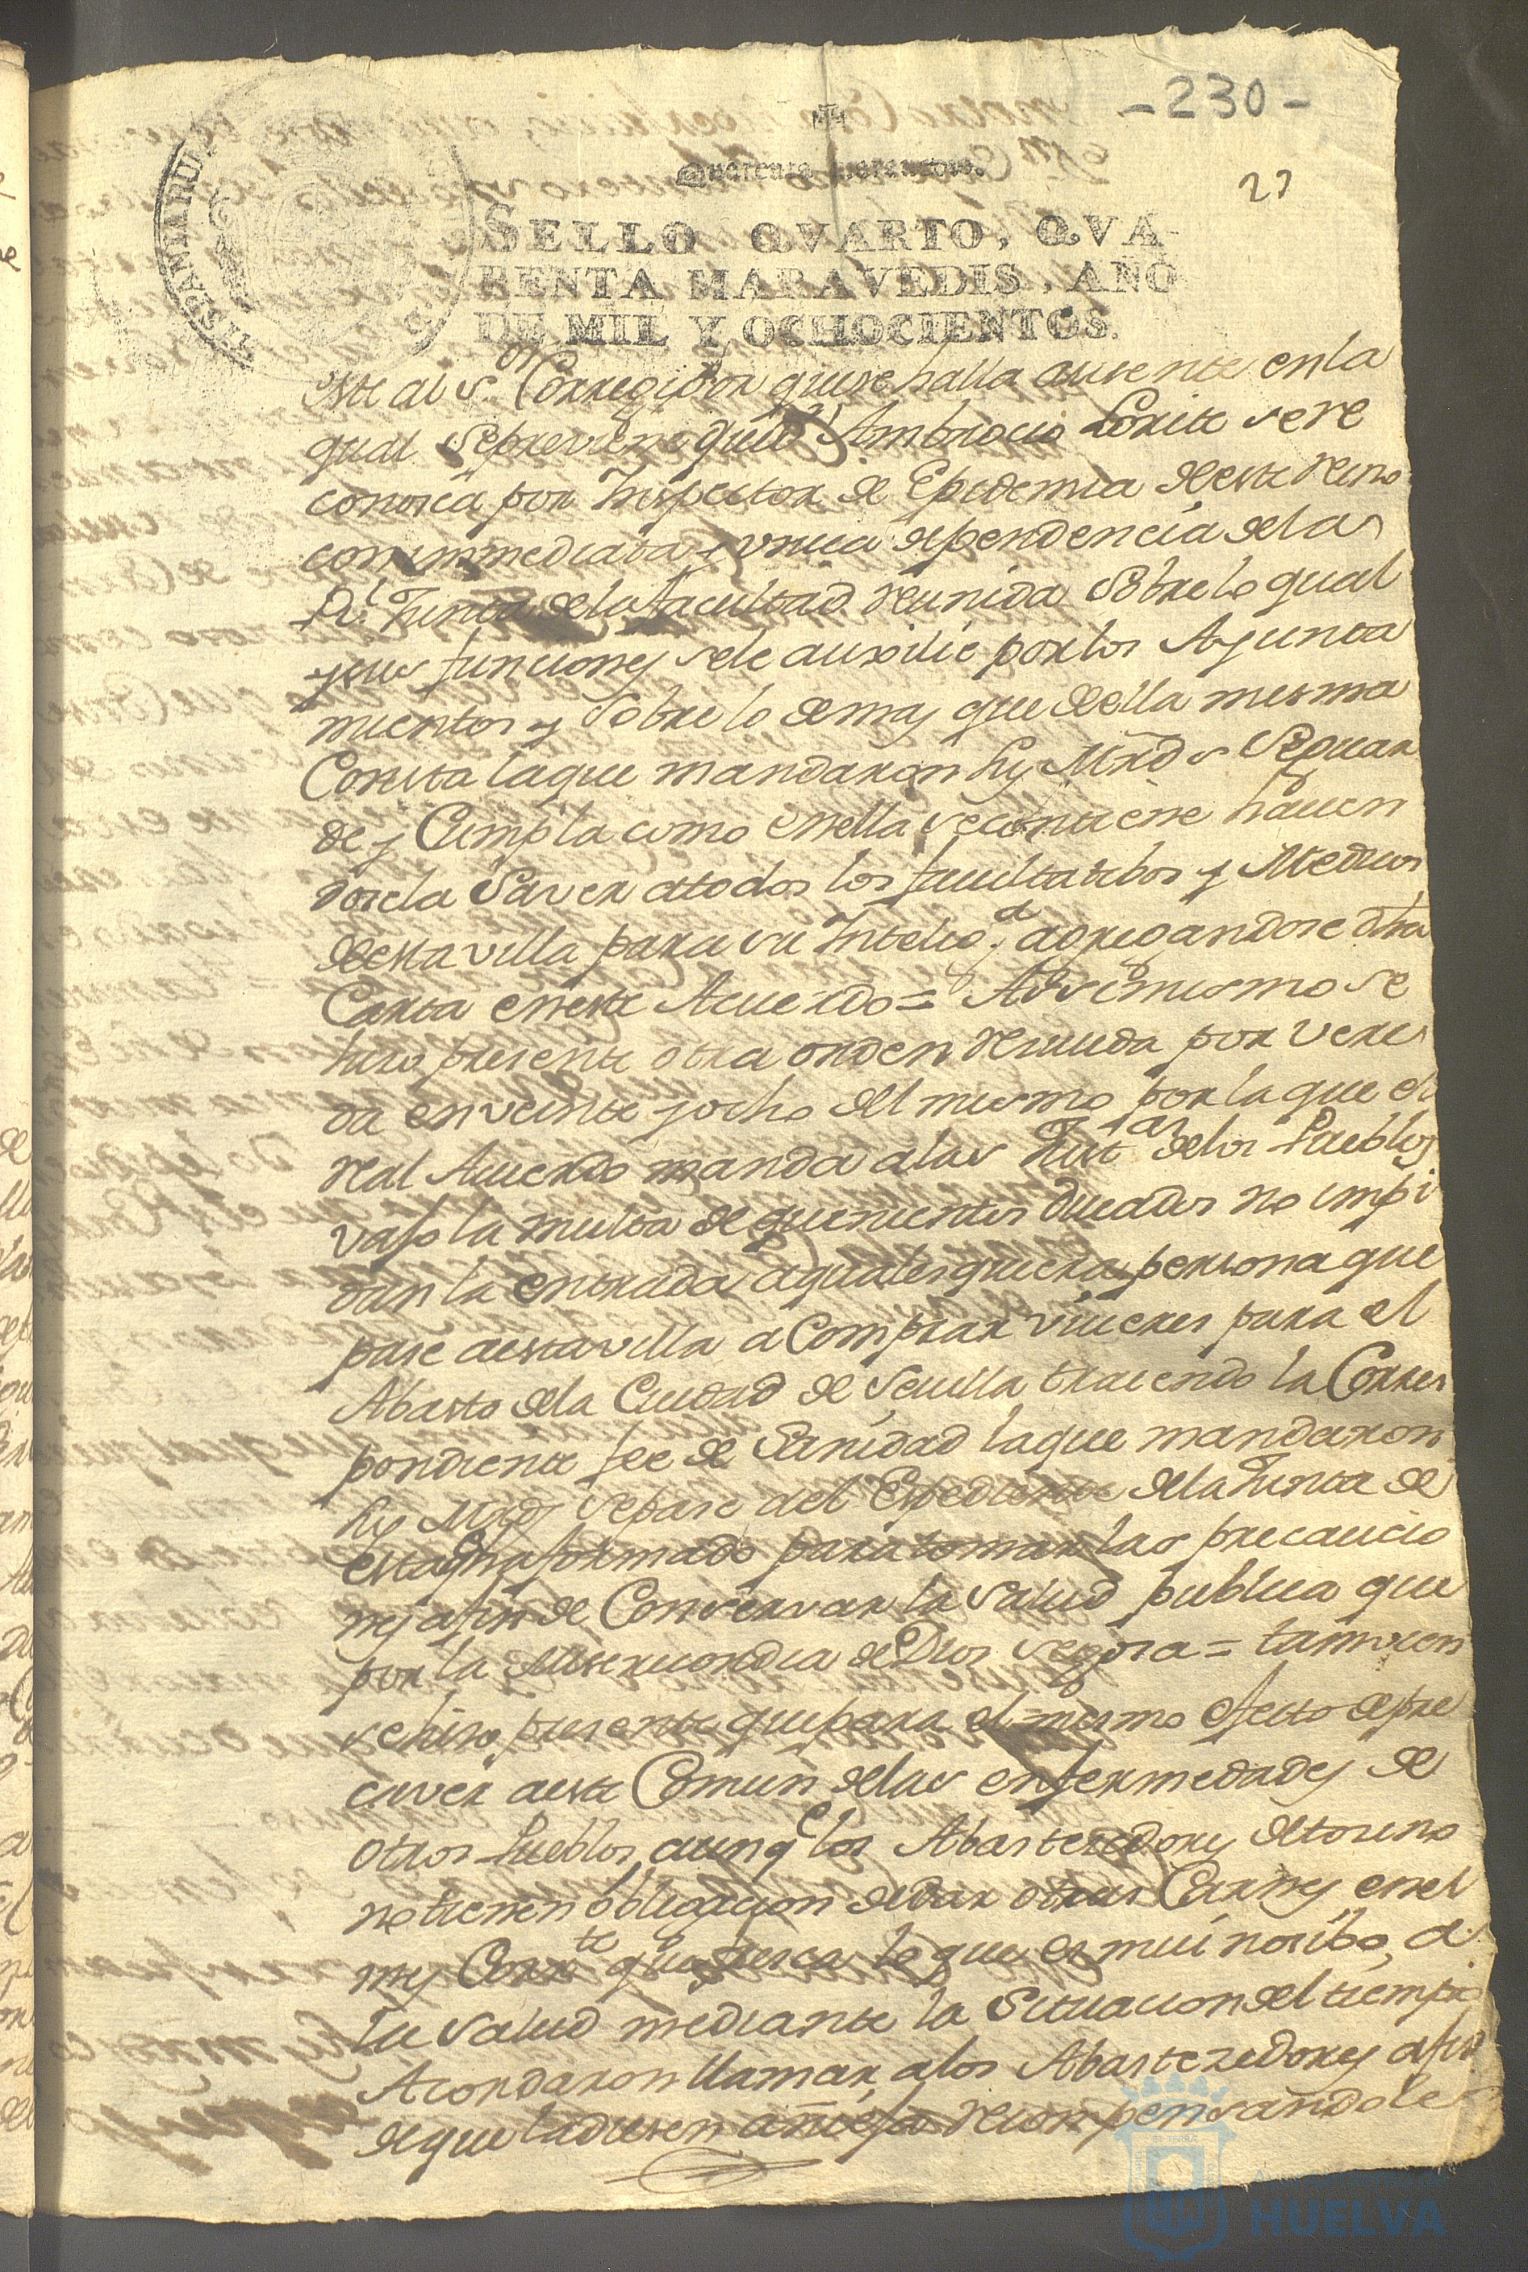 -230-
27
Quarenta maravedis.
HISPANIARU
SELLO QVARTO, QVA-
RENTA MARAVEDIS, AÑO
DE MIL Y OCHOCIENTOS.
este al Sor. Corregidor que se halla ausente en la
qual se previene que Dn. Ambrocio Lorite se re
conosca por Inspector de Epidemia de este Reino
con immediata y unica dependencia de la
Rl. Junta de la facultad reunida sobre lo qual
y sus funciones se le auxilie por los Ayunta
mientos y sobre lo demas que de ella misma
Consta la que mandaron sus Mrds. se guar
de y Cumpla como en ella se contiene hacien
dosela Saver a todos los facultatibos y Medicos
de esta villa para su Intelig.a agregandose dha
Carta en este Acuerdo = Assimismo se
hiso presente otra orden recivida por vere
da en veinte y ocho del mismo por la que el
real Acuerdo manda a las Just.as de los Pueblos
vajo la multa de quinientos ducados no impi
dan la entrada a qualesquiera persona que
pase a esta villa a Comprar viveres para el
Abasto de la Ciudad de Sevilla trayendo la Corres
pondiente fee de Sanidad la que mandaron
sus Mrds. se pase al Expediente de la Junta de
esta formado para tomar las precaucio
nes a fin de Conservar la salud publica que
por la Misericordia de Dios se gosa = tamvien
se hiso presente que para el mismo efecto de pre
caver a este Comun de las enfermedades de
otros Pueblos, aunqe. los Abastezedores de tosino
no tienen obligacion de dar otras Carnes en el
mes Corrte. que fresca lo que es mui nosibo a
la salud mediante la Situacion del tiempo
Acordaron llamar a los Abastezedores a fin
de que la diesen añeja recompensandole
HUELVA